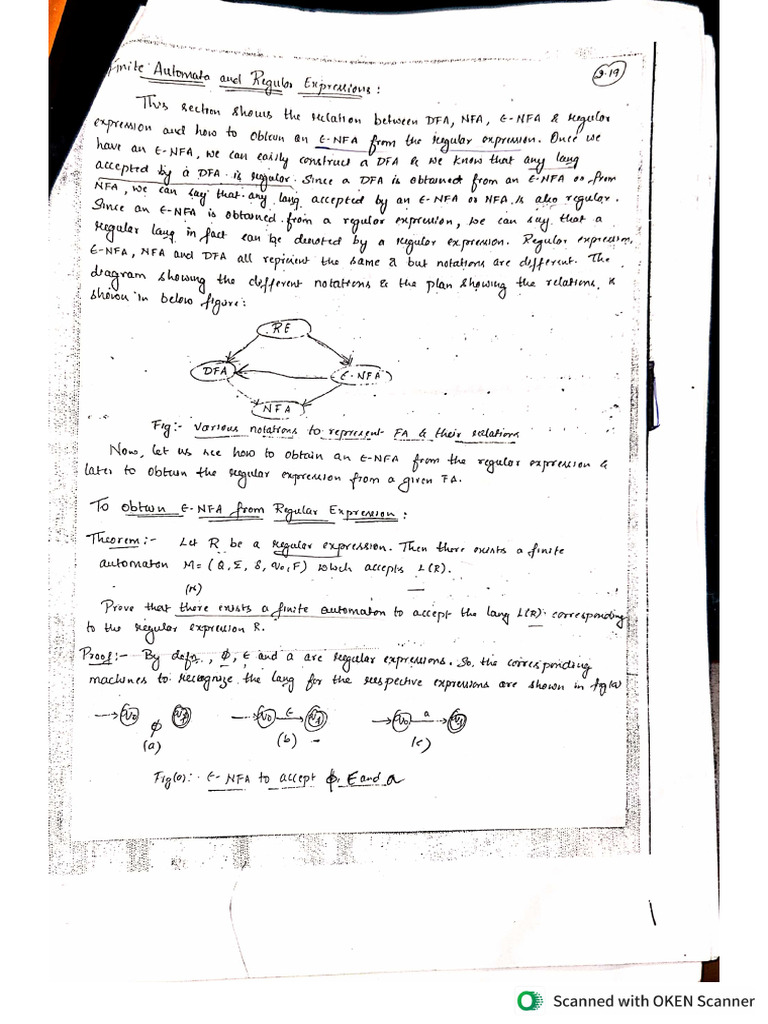 Finite Automata and Regular Expressions :
2.19
This section shows the relation between DFA, NFA, ε-NFA & regular
expression and how to obtain an ε-NFA from the regular expression. Once we
have an ε-NFA, we can easily construct a DFA & we know that any lang
accepted by a DFA is regular. Since a DFA is obtained from an ε-NFA or from
NFA, we can say that any lang accepted by an ε-NFA or NFA is also regular.
Since an ε-NFA is obtained from a regular expression, we can say that a
regular lang in fact can be denoted by a regular expression. Regular expression,
ε-NFA, NFA and DFA all represent the same & but notations are different. The
diagram showing the different notations & the plan showing the relations is
shown in below figure:
RE
DFA
ε-NFA
NFA
Fig:- various notations to represent FA & their relations
Now, let us see how to obtain an ε-NFA from the regular expression &
later to obtain the regular expression from a given FA.
To obtain ε-NFA from Regular Expression :
Theorem:- Let R be a regular expression. Then there exists a finite
automaton M = (Q, Σ, δ, q0, F) which accepts L(R).
Prove that there exists a finite automaton to accept the lang L(R) corresponding
to the regular expression R.
Proof:- By defn., ϕ, ε and a are regular expressions. So, the corresponding
machines to recognize the lang for the respective expressions are shown in fig(a)
q0 ϕ qf
q0 ε qf
q0 a qf
(a)
(b)
(c)
Fig(a):- ε-NFA to accept ϕ, ε and a
Scanned with OKEN Scanner